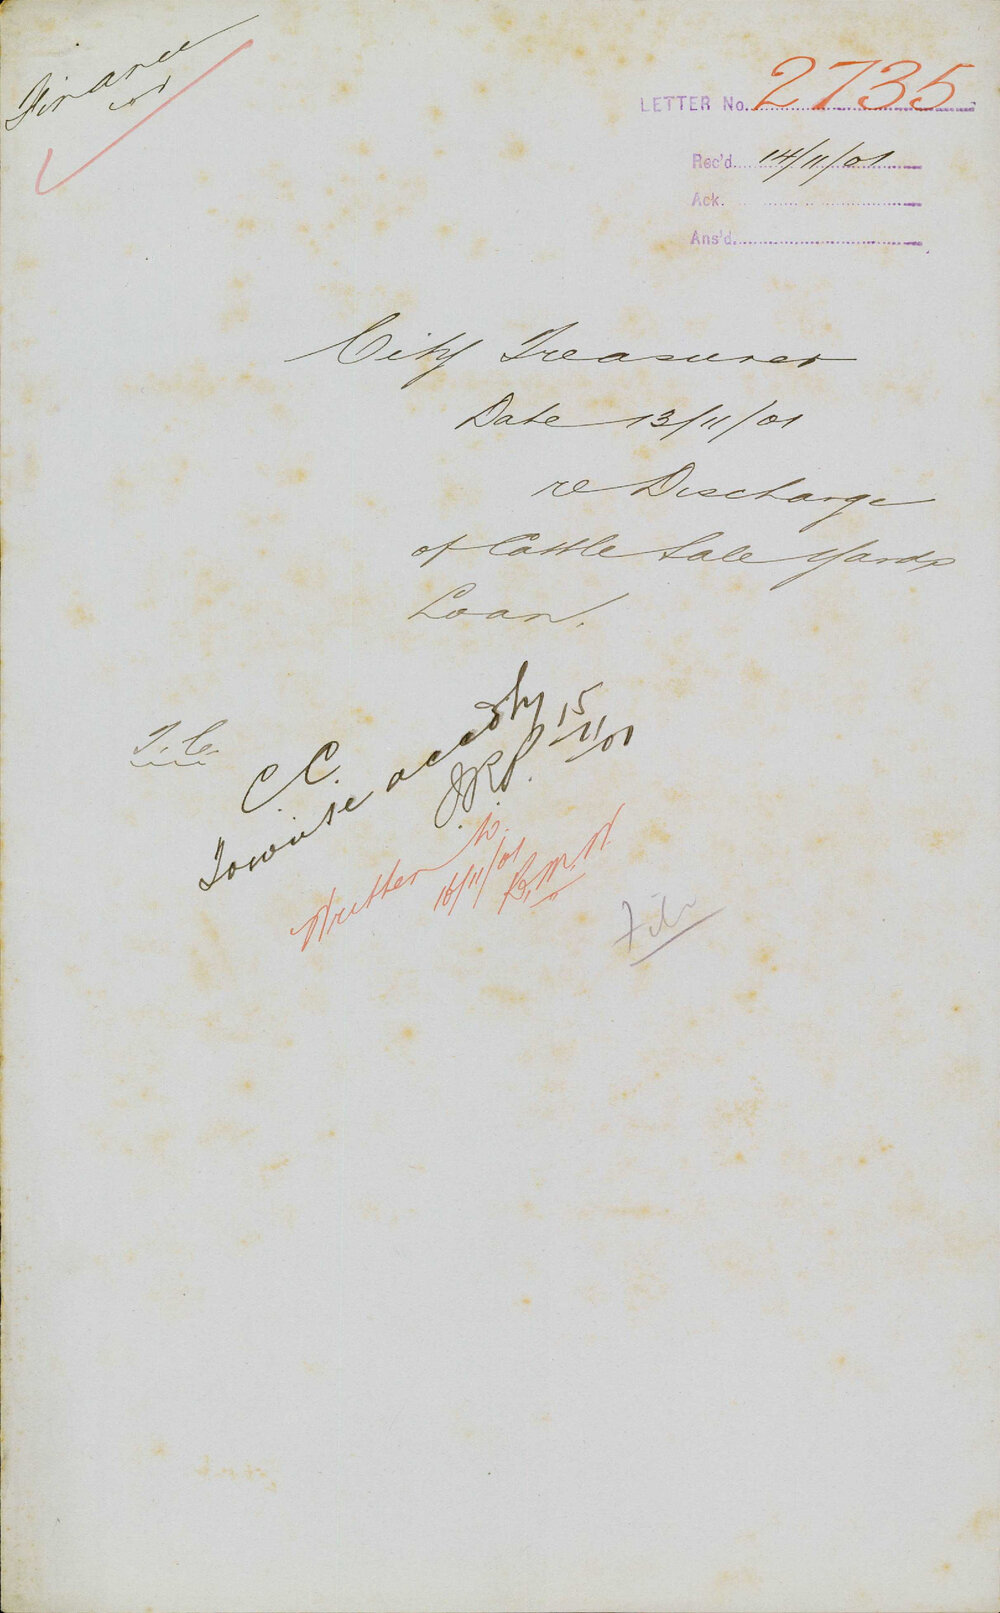 Finance
LETTER No. 2735
Rec'd. 14/11/01
Ack.
Ans'd.
City Treasurer
Date 13/11/01
re Discharge
of Cattle Sale Yards
Loan.
T.C.
C.C.
To write accdly
J.R.P. 15/11/01
Written to.
16/11/01
File